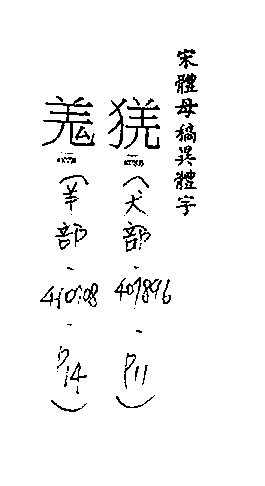 宋體母稿異體字
㹰（犬部-407896-P11）
羗（羊部-410108-P14）